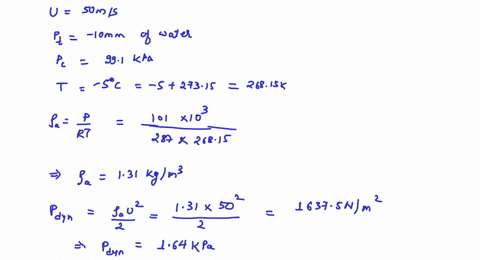 U = 50m/s
Pt = -10mm of water
Pc = 99.1 kPa
T = -5°C = -5 + 273.15 = 268.15K
ρa = P/RT = 101 × 10³ / 287 × 268.15
⇒ ρa = 1.31 kg/m³
Pdyn = ρaU²/2 = 1.31 × 50²/2 = 1637.5N/m²
⇒ Pdyn = 1.64kPa